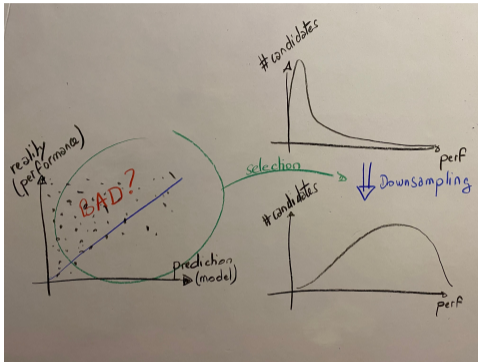 reality
(performance)
BAD?
prediction
(model)
selection
# candidates
perf
Downsampling
# candidates
perf